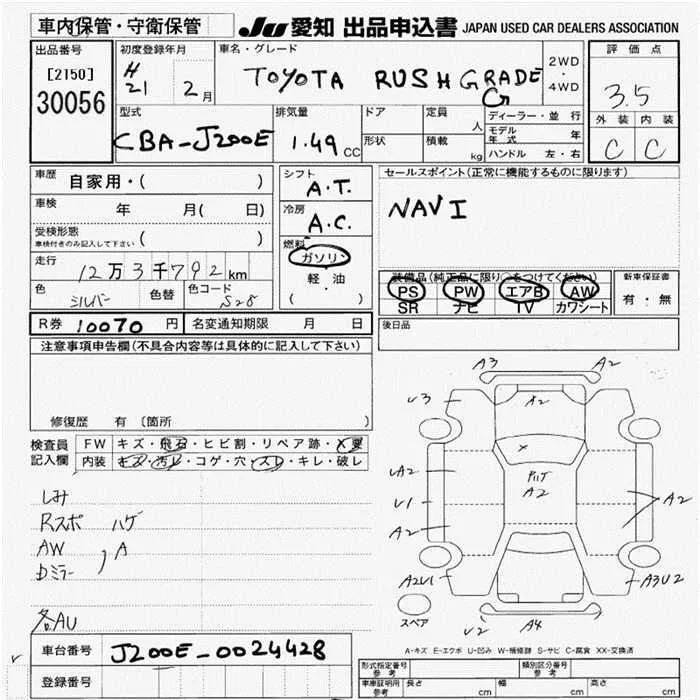 車内保管・守衛保管 JU 愛知 出品申込書 JAPAN USED CAR DEALERS ASSOCIATION
出品番号 初度登録年月 車名・グレード 2WD・4WD 評価点
[2150] H21 2月 TOYOTA RUSH GRADE G 3.5
30056
型式 排気量 ドア 定員 人 ディーラー・並行 外装 内装
CBA-J200E 1.49 CC 形状 積載 kg モデル年式 年 C C
ハンドル 左・右
車歴 自家用・( ) シフト A.T. セールスポイント(正常に機能するものに限ります)
車検 年 月( 日) 冷房 A.C. NAVI
受検形態 ( )
車検付きのみ記入して下さい
燃料 ガソリン
走行 12万3千792km 軽・油 装備品(純正品に限り○をつけてください) 新車保証書
色 シルバー 色替 色コード S28 ( ) PS PW エアB AW 有・無
SR ナビ TV カワシート
R券 10070 円 名変通知期限 月 日 後日品
注意事項申告欄(不具合内容等は具体的に記入して下さい)
A3 A2
V3 A2
修復歴 有 〔箇所 〕
検査員 FW キズ・飛石・ヒビ割・リペア跡・X要
記入欄 内装 キズ・汚レ・コゲ・穴・スレ・キレ・破レ
x
ハゲ
A2
UA2
しみ U1 A2
Rスポ ハゲ
A2
AW
A
Dミラー
A2U1 A3U2
各AU スペア
U2 A4
A-キズ E-エクボ U-凹み W-補修跡 S-サビ C-腐食 XX-交換済
車台番号 J200E-0024428
型式指定番号 参考 類別区分番号 参考
登録番号 車庫証明用 参考 長さ cm 幅 cm 高さ cm